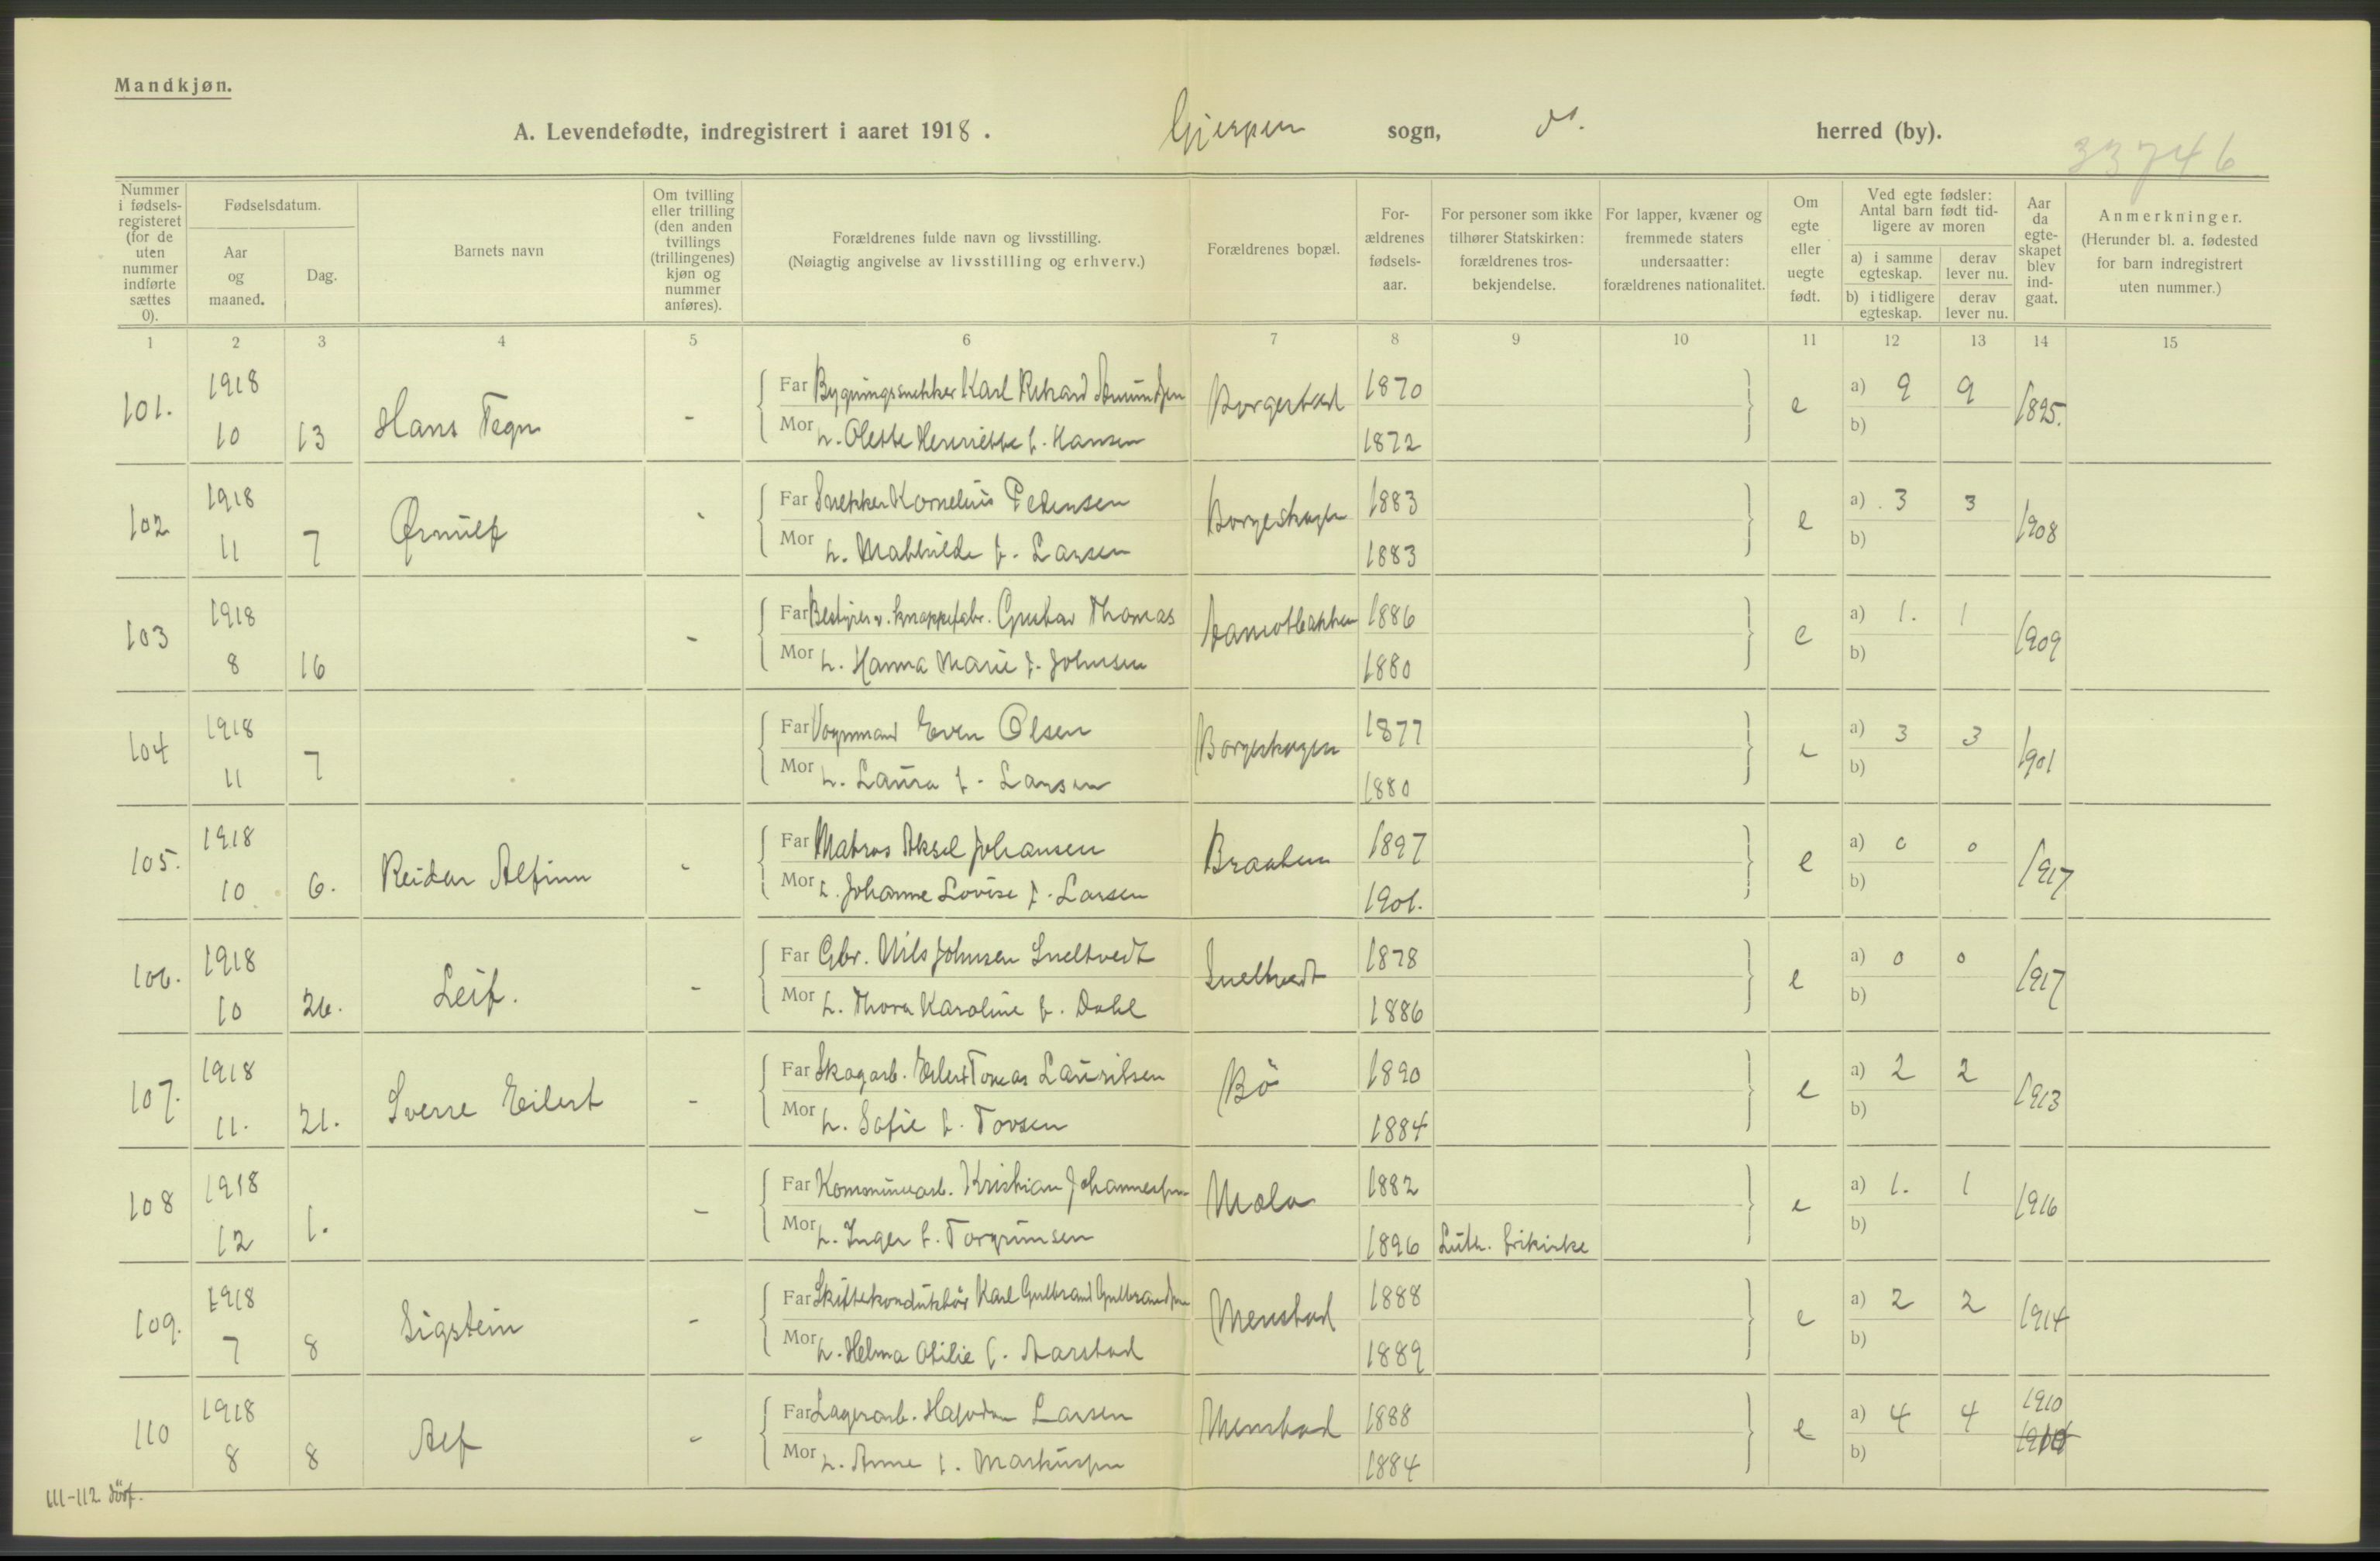 Mandkjøn.
A. Levendefødte, indregistrert i aaret 1918. Gjerpen sogn, ds. herred (by).
33746
Nummer i fødselsregisteret (for de uten nummer indførte sættes 0).
Fødselsdatum.
Aar og maaned.
Dag.
Barnets navn
Om tvilling eller trilling (den anden tvillings (trillingenes) kjøn og nummer anføres).
Forældrenes fulde navn og livsstilling.
(Nøiagtig angivelse av livsstilling og erhverv.)
Forældrenes bopæl.
Forældrenes fødselsaar.
For personer som ikke tilhører Statskirken: forældrenes trosbekjendelse.
For lapper, kvæner og fremmede staters undersaatter: forældrenes nationalitet.
Om egte eller uegte født.
Ved egte fødsler: Antal barn født tidligere av moren
a) i samme egteskap. derav lever nu.
b) i tidligere egteskap. derav lever nu.
Aar da egteskapet blev indgaat.
Anmerkninger.
(Herunder bl. a. fødested for barn indregistrert uten nummer.)
1 2 3 4 5 6 7 8 9 10 11 12 13 14 15
101. 1918 10 13 Hans Tegn - Far Bygningssnekker Karl Rikard Amundsen Borgestad 1870 e a) 9 9 1895.
Mor h. Olette Henriette f. Hansen 1872 b)
102 1918 11 7 Ørnulf - Far Snekker Kornelius Pedersen Borgeskogen 1883 e a) 3 3 1908
Mor h. Mathilde f. Larsen 1883 b)
103 1918 8 16 - Far Bestyrer v. knappefabr. Gustav Thomas 1886 e a) 1. 1 1909
Mor h. Hanna Marie f. Johnsen 1880 b)
104 1918 11 7 Far Vognmand Even Olsen Borgeskogen 1877 e a) 3 3 1901
Mor h. Laura f. Larsen 1880 b)
105. 1918 10 6. Reidar Alfinn - Far Matros Aksel Johansen Braaten 1897 e a) 0 0 1917
Mor h. Johanne Lovise f. Larsen 1901. b)
106. 1918 10 26. Leif. - Far Gbr. Nils Johnsen Sneltvedt Sneltvedt 1878 e a) 0 0 1917
Mor h. Thora Karoline f. Dahl 1886 b)
107. 1918 11. 21. Sverre Eilert - Far Skogarb. Eilert Tomas Lauritsen Bö 1890 e a) 2 2 1913
Mor h. Sofie f. Tovsen 1884 b)
108 1918 12 1. - Far Kommunearb. Kristian Johannessen Mæla 1882 e a) 1. 1 1916
Mor h. Inger f. Torgrimsen 1896 Luth. frikirke b)
109. 1918 7 8 Sigstein - Far Skiftekonduktör Karl Gulbrand Gulbrandsen Menstad 1888 e a) 2 2 1914
Mor h. Helma Otilie f. Aarstad 1889 b)
110 1918 8 8 Alf - Far Lagerarb. Halvdan Larsen Menstad 1888 e a) 4 4 1910
Mor h. Anne f. Markussen 1884 b)
111-112 dösf.